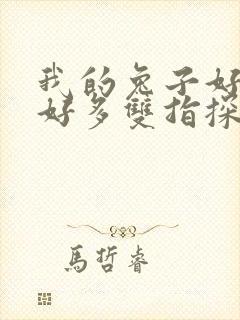 我的兔子好
好多雙指探
馬哲睿